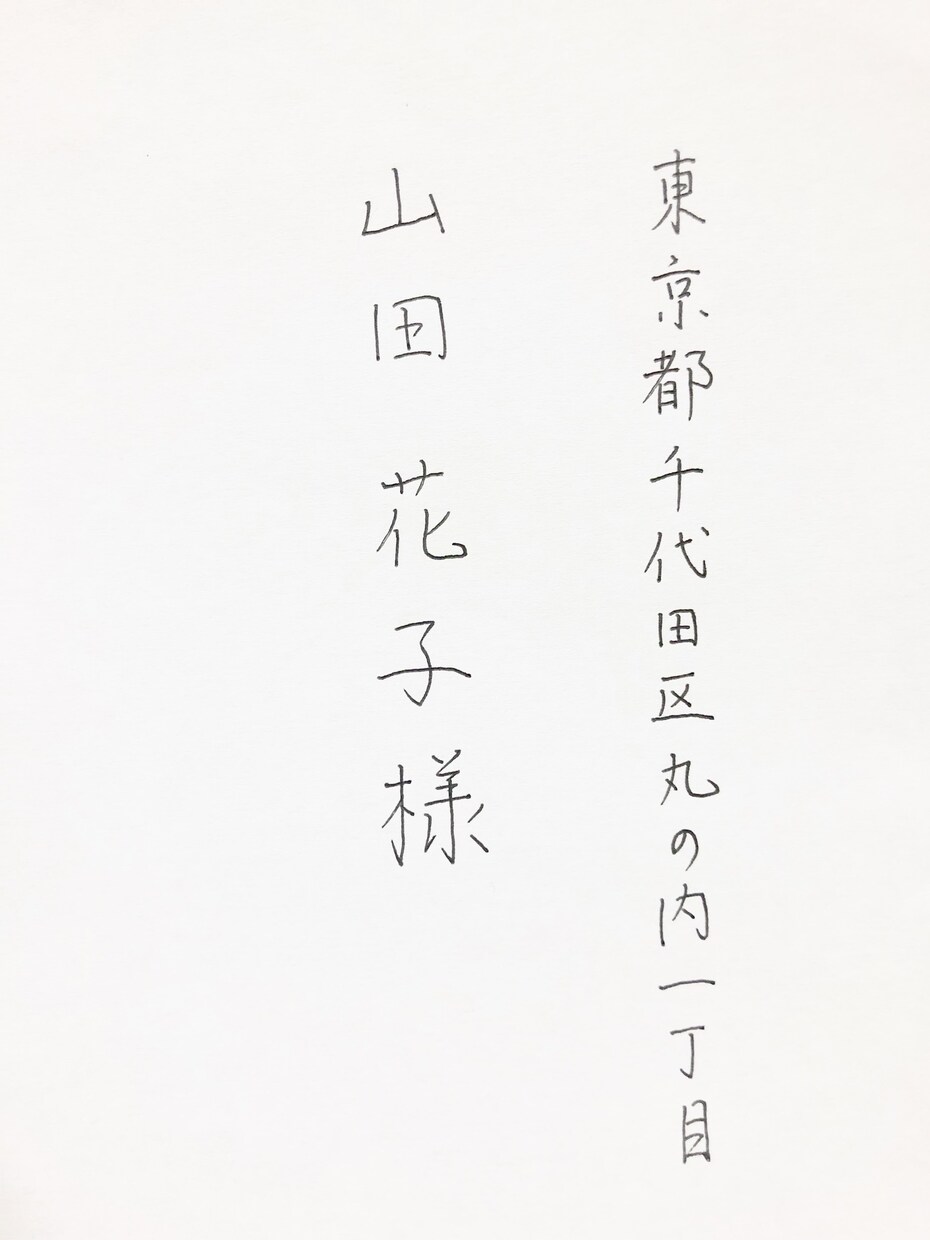 東京都千代田区丸の内一丁目
山田花子様